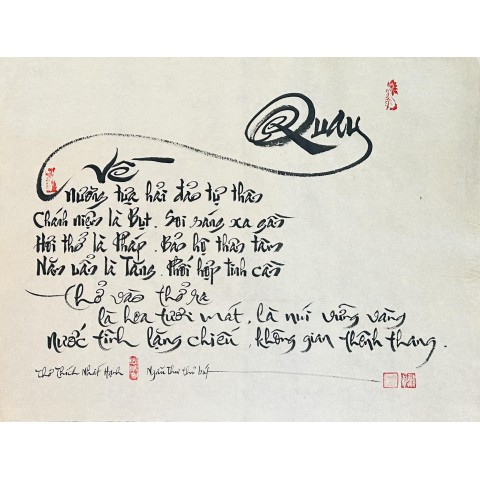 Quay
Về
Nương tựa hải đảo tự thân
Chánh niệm là Bụt. Soi sáng xa gần
Hơi thở là Pháp. Bảo hộ thân tâm
Năm uẩn là Tăng. Phối hợp tinh cần
Thở vào thở ra
là hoa tươi mát, là núi vững vàng
nước tĩnh lặng chiếu, không gian thênh thang.
Thơ Thích Nhất Hạnh Ngẫu Thư thủ bút